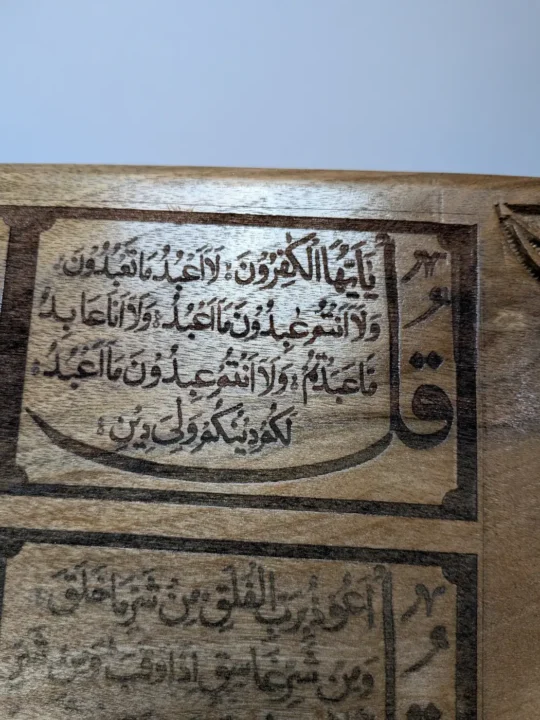 قُلْ
يَٓاَيُّهَا الْكٰفِرُونَ لَٓا اَعْبُدُ مَا تَعْبُدُونَ
وَلَٓا اَنْتُمْ عٰبِدُونَ مَٓا اَعْبُدُ وَلَٓا اَنَا۬ عَابِدٌ
مَا عَبَدْتُمْ وَلَٓا اَنْتُمْ عٰبِدُونَ مَٓا اَعْبُدُ
لَكُمْ دِينُكُمْ وَلِيَ دِينِ
اَعُوذُ بِرَبِّ الْفَلَقِ مِنْ شَرِّ مَا خَلَقَ
وَمِنْ شَرِّ غَاسِقٍ اِذَا وَقَبَ وَمِنْ شَرِّ